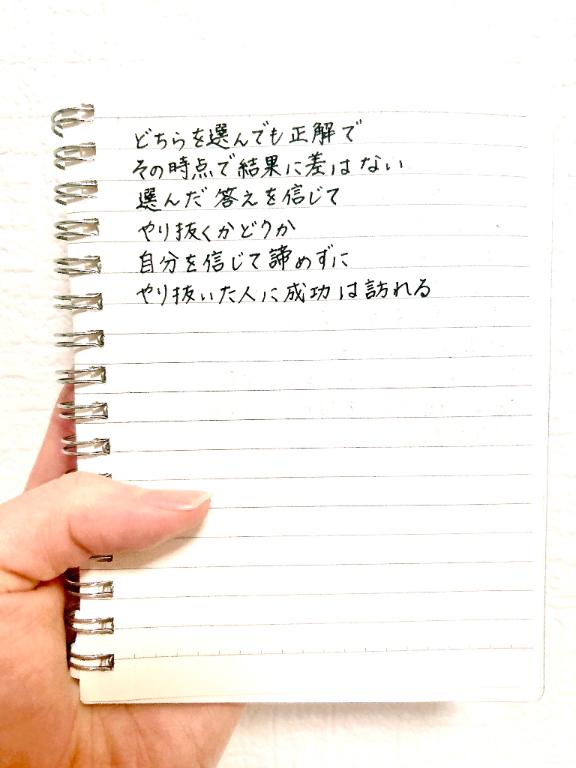 どちらを選んでも正解で
その時点で結果に差はない
選んだ答えを信じて
やり抜くかどうか
自分を信じて諦めずに
やり抜いた人に成功は訪れる